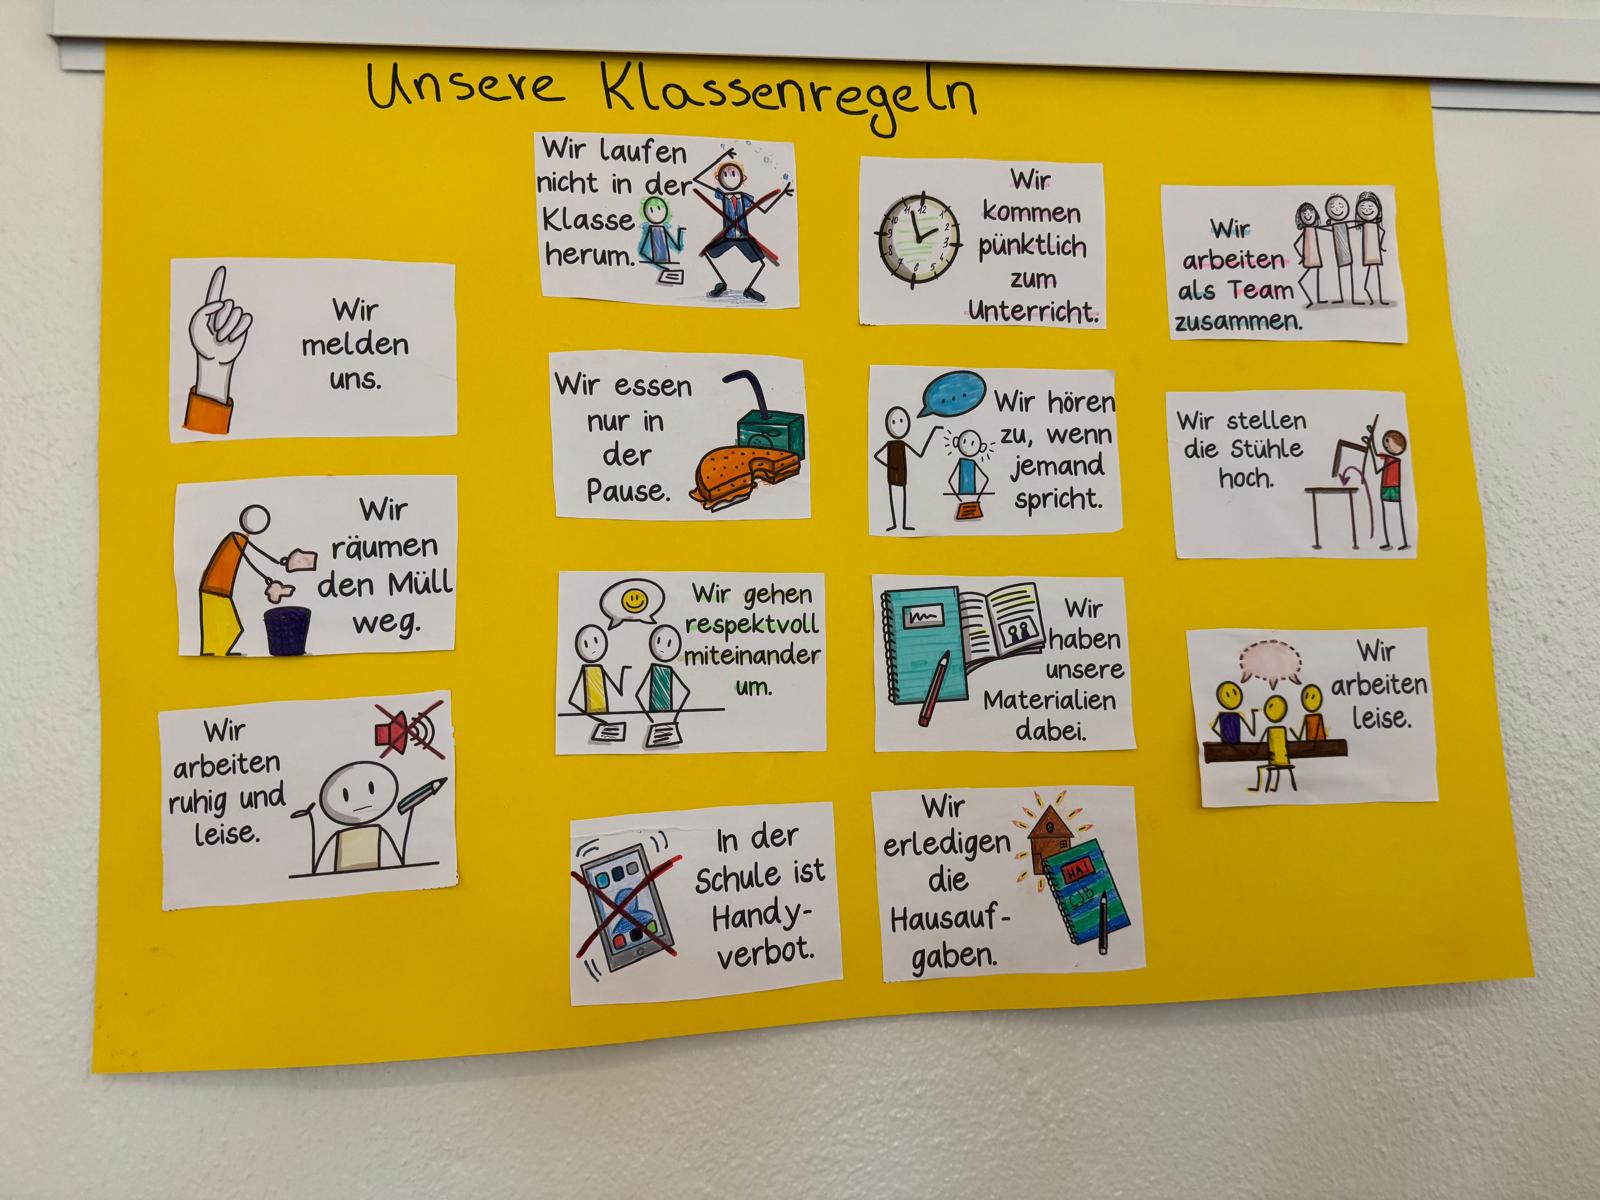 Unsere Klassenregeln
Wir
melden
uns.
Wir
räumen
den Müll
weg.
Wir
arbeiten
ruhig und
leise.
Wir laufen
nicht in der
Klasse
herum.
Wir essen
nur in
der
Pause.
Wir gehen
respektvoll
miteinander
um.
In der
Schule ist
Handy-
verbot.
Wir
kommen
pünktlich
zum
Unterricht.
Wir hören
zu, wenn
jemand
spricht.
Wir
haben
unsere
Materialien
dabei.
Wir
erledigen
die
Hausauf-
gaben.
HA!
Wir
arbeiten
als Team
zusammen.
Wir stellen
die Stühle
hoch.
Wir
arbeiten
leise.